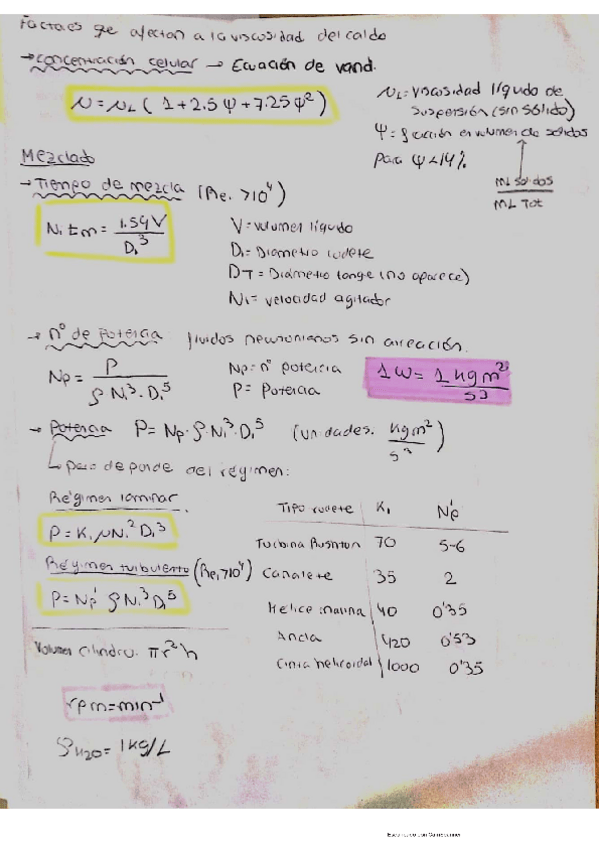 Factores que afectan a la viscosidad del caldo
→ concentración celular → Ecuación de vand.
μ = μL ( 1 + 2.5 ψ + 7.25 ψ²)
μL = viscosidad líquido de suspensión (sin sólido)
ψ = fracción en volumen de solidos
Para ψ < 14%
mL solidos
mL Tot
Mezclado
→ Tiempo de mezcla (Rei > 10⁴)
Ni tm = 1.54 V / Di³
V = volumen líquido
Di = Diametro rodete
DT = Diámetro tanque (no aparece)
Ni = velocidad agitador
→ nº de potencia fluidos newtonianos sin aireación.
Np = P / ρ Ni³ · Di⁵
Np = nº potencia
P = Potencia
1 W = 1 kg m² / s³
→ Potencia P = Np · ρ · Ni³ · Di⁵ (unidades. kg m² / s³)
↳ pero depende del régimen:
Régimen laminar.
P = K1 μ Ni² Di³
Régimen turbulento (Rei > 10⁴)
P = Np' ρ Ni³ Di⁵
Tipo rodete K1 Np'
Turbina Rushton 70 5-6
Canalete 35 2
Helice marina 40 0'35
Ancla 420 0'53
Cinta helicoidal 1000 0'35
Volumen cilindro. π r² h
rpm = min⁻¹
ρH2O = 1 kg/L
Escaneado con CamScanner